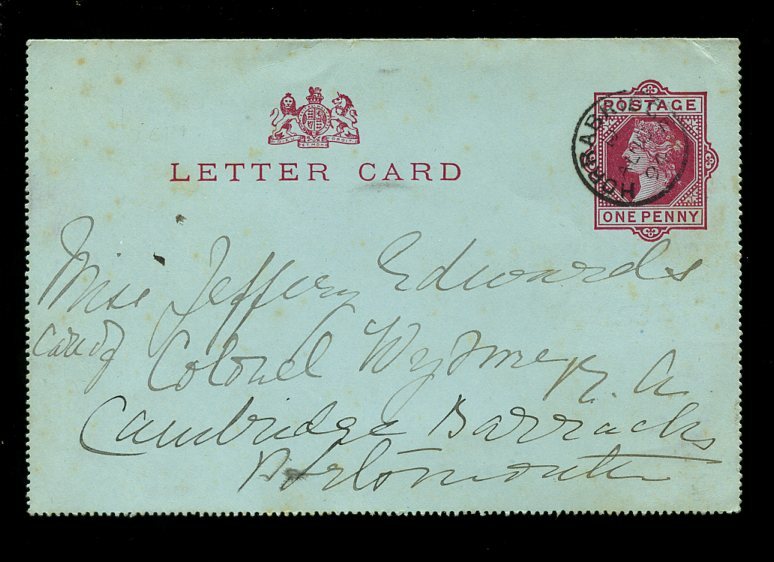 POSTAGE
LETTER CARD
ONE PENNY
Miss Jeffery Edwards
care of
Colonel
Cambridge Barracks
Portsmouth